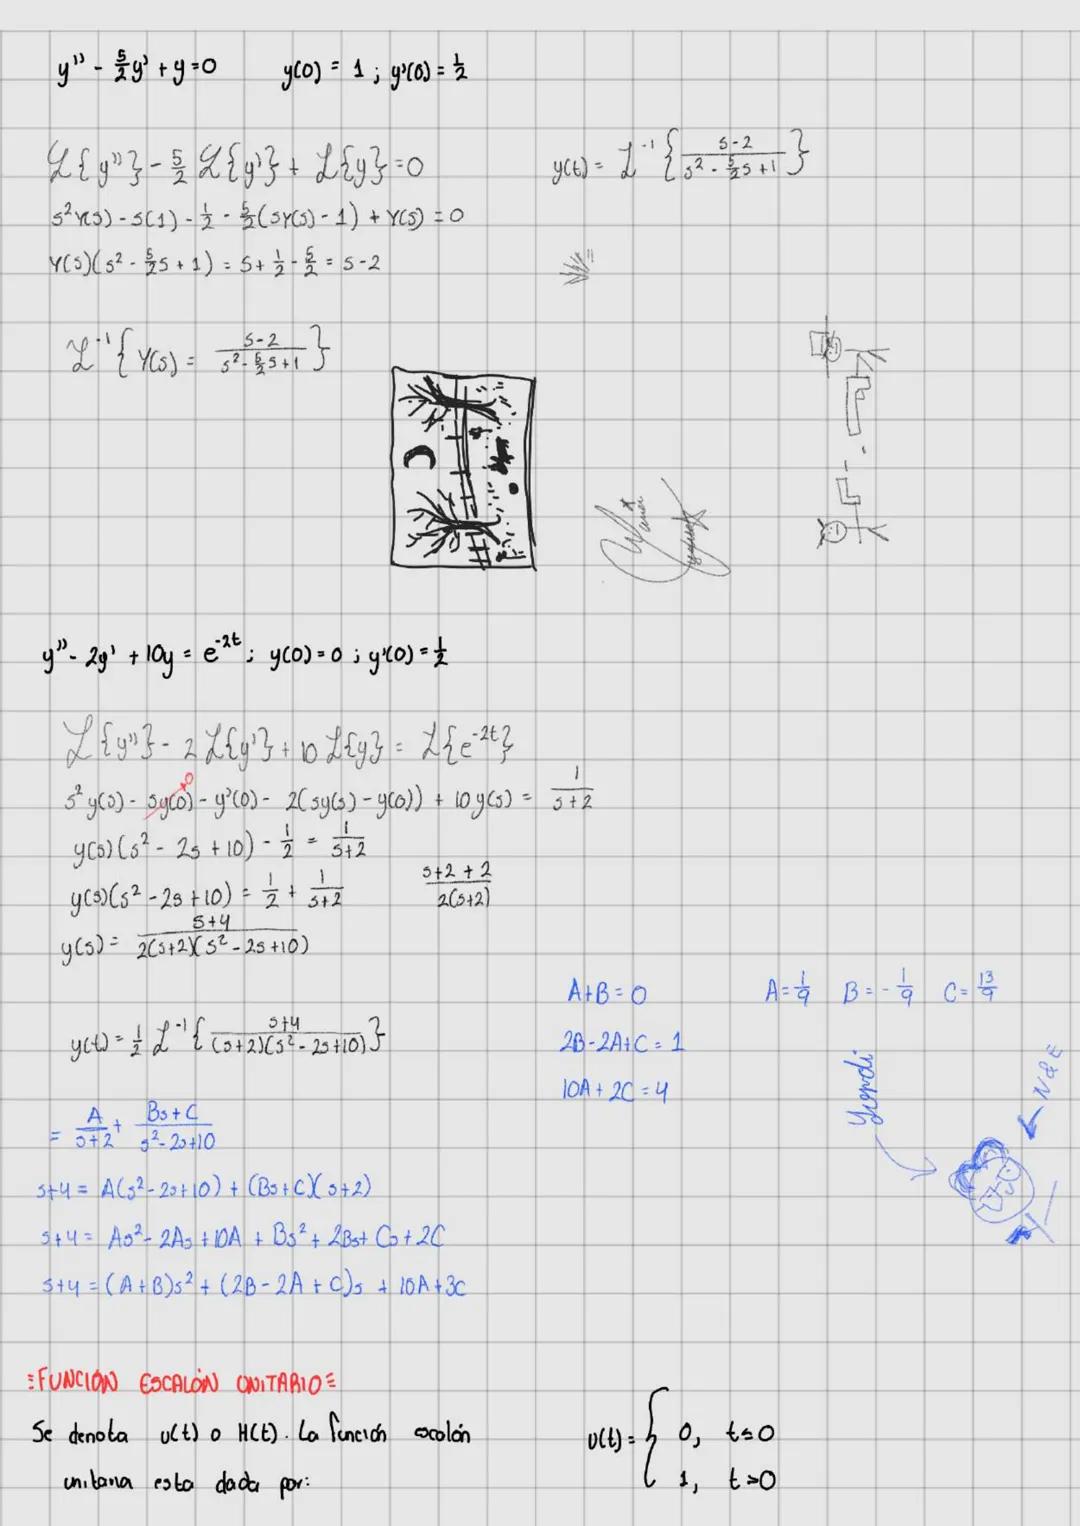 y'' - 5/2 y' + y = 0    y(0) = 1 ; y'(0) = 1/2
ℒ{y''} - 5/2 ℒ{y'} + ℒ{y} = 0
s²Y(s) - s(1) - 1/2 - 5/2(sY(s) - 1) + Y(s) = 0
Y(s)(s² - 5/2 s + 1) = s + 1/2 - 5/2 = s - 2
ℒ⁻¹{Y(s) = (s-2)/(s² - 5/2 s + 1)}
y(t) = ℒ⁻¹{(s-2)/(s² - 5/2 s + 1)}
y'' - 2y' + 10y = e^(-2t) ; y(0) = 0 ; y'(0) = 1/2
ℒ{y''} - 2ℒ{y'} + 10ℒ{y} = ℒ{e^(-2t)}
s²y(s) - sy(0)→0 - y'(0) - 2(sy(s) - y(0)) + 10y(s) = 1/(s+2)
y(s)(s² - 2s + 10) - 1/2 = 1/(s+2)
y(s)(s² - 2s + 10) = 1/2 + 1/(s+2)    (s+2+2)/(2(s+2))
y(s) = (s+4)/(2(s+2)(s² - 2s + 10))
y(t) = 1/2 ℒ⁻¹{(s+4)/((s+2)(s² - 2s + 10))}
= A/(s+2) + (Bs+C)/(s² - 2s + 10)
s+4 = A(s² - 2s + 10) + (Bs+C)(s+2)
s+4 = As² - 2As + 10A + Bs² + 2Bs + Cs + 2C
s+4 = (A+B)s² + (2B - 2A + C)s + 10A + 3C
A+B = 0
2B - 2A + C = 1
10A + 2C = 4
A = 1/9    B = -1/9    C = 13/9
Yuordi
=FUNCIÓN ESCALÓN UNITARIO=
Se denota u(t) o H(t). La función escalón
unitaria esta dada por:
U(t) = { 0, t≤0
1, t>0